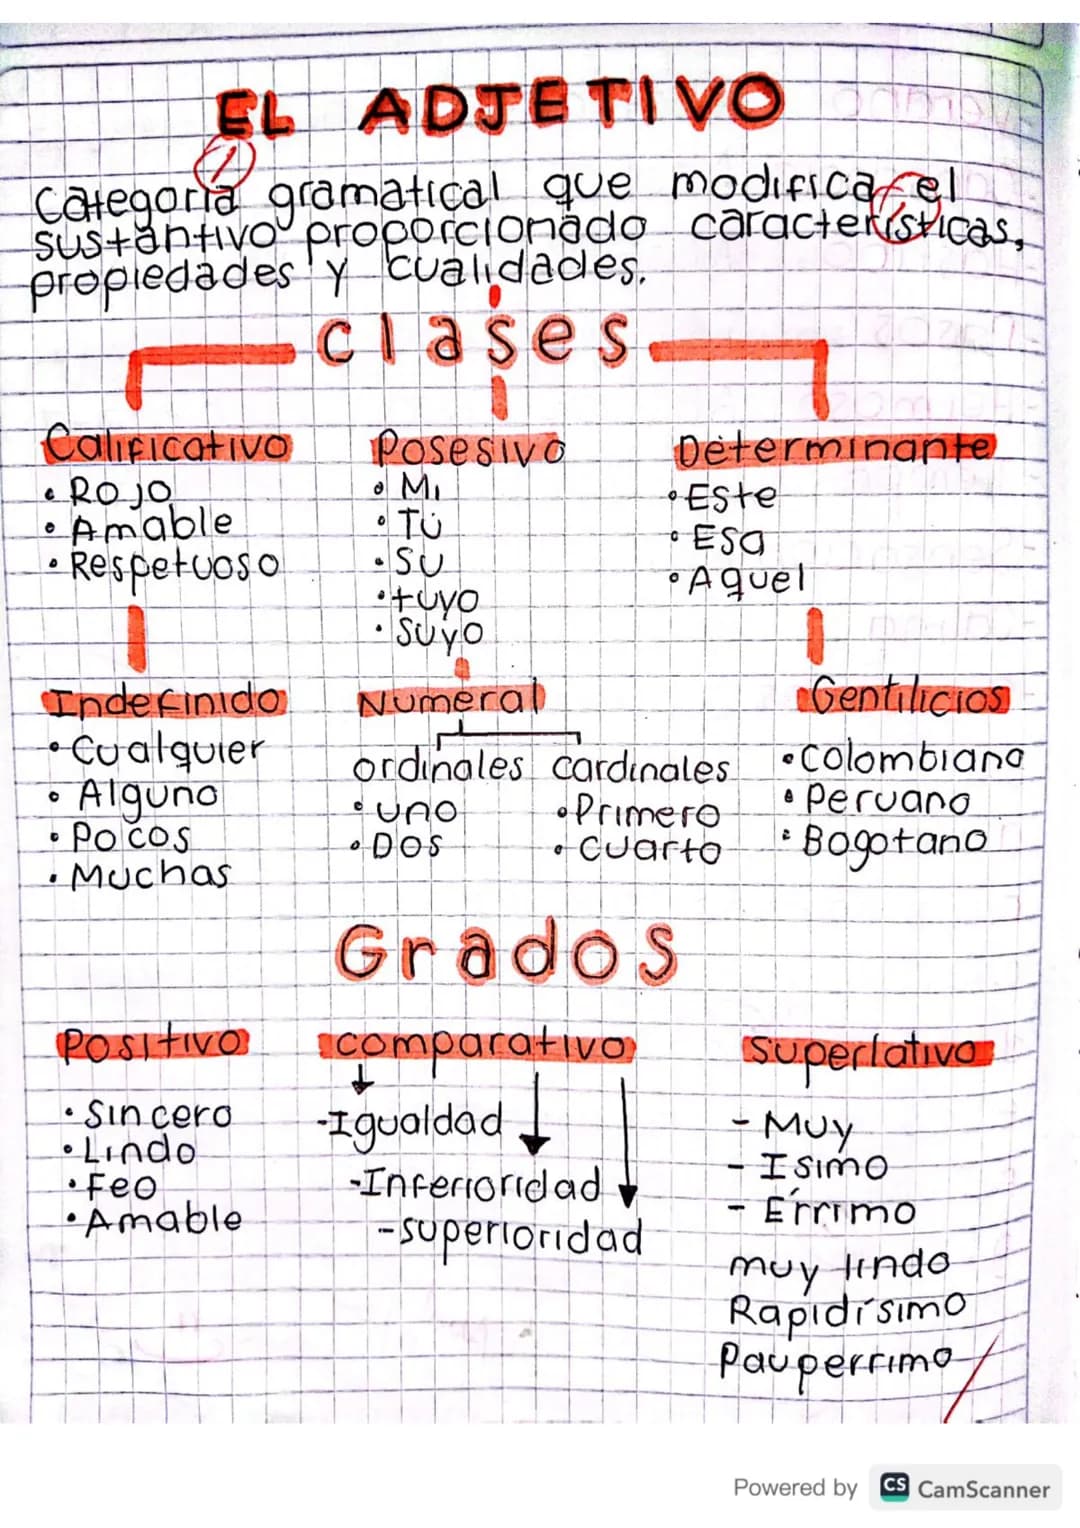 EL ADJETIVO
categoría gramatical que modifica el
sustantivo proporcionado características,
propiedades y cualidades.
clases
Calificativo
• Rojo
• Amable
• Respetuoso
Posesivo
• Mi
• Tú
• Su
• tuyo
• Suyo
Determinante
• Este
• Esa
• Aquel
Indefinido
• Cualquier
• Alguno
• Pocos
• Muchas
Numeral
ordinales
• uno
• Dos
cardinales
• Primero
• Cuarto
Gentilicios
• Colombiano
• Peruano
• Bogotano
Grados
Positivo
• Sincero
• Lindo
• Feo
• Amable
comparativo
-Igualdad
-Inferioridad
-superioridad
superlativo
- Muy
- Isimo
- Érrimo
muy lindo
Rapidísimo
Pauperrimo
Powered by CS CamScanner